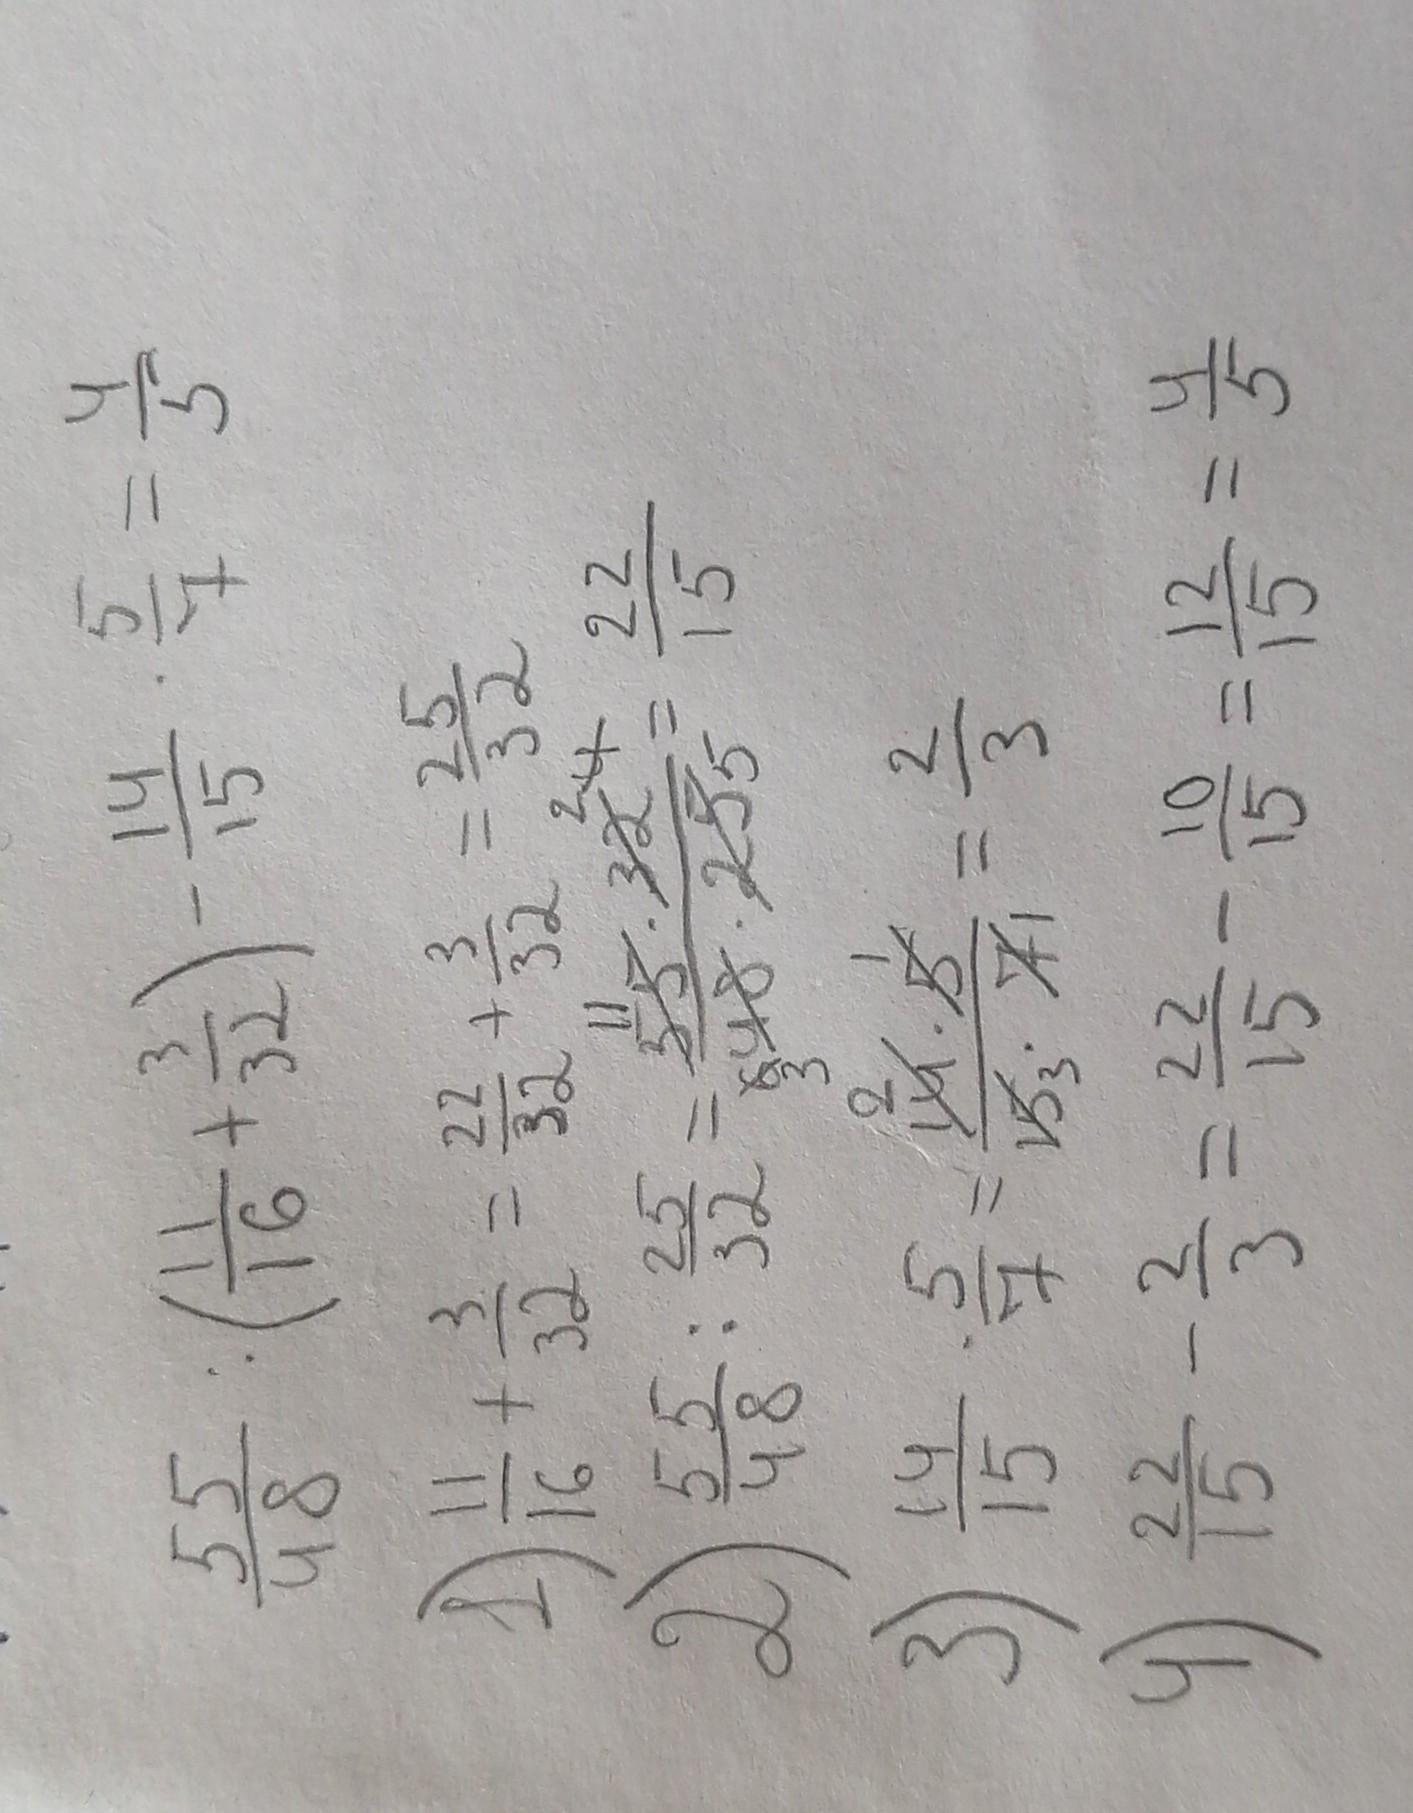 55/48 : (11/16 + 3/32) - 14/15 · 5/7 = 4/5
1) 11/16 + 3/32 = 22/32 + 3/32 = 25/32
2) 55/48 : 25/32 = 55 11 · 32 4 2 / 48 6 3 · 25 5 = 22/15
3) 14/15 · 5/7 = 14 2 · 5 1 / 15 3 · 7 1 = 2/3
4) 22/15 - 2/3 = 22/15 - 10/15 = 12/15 = 4/5